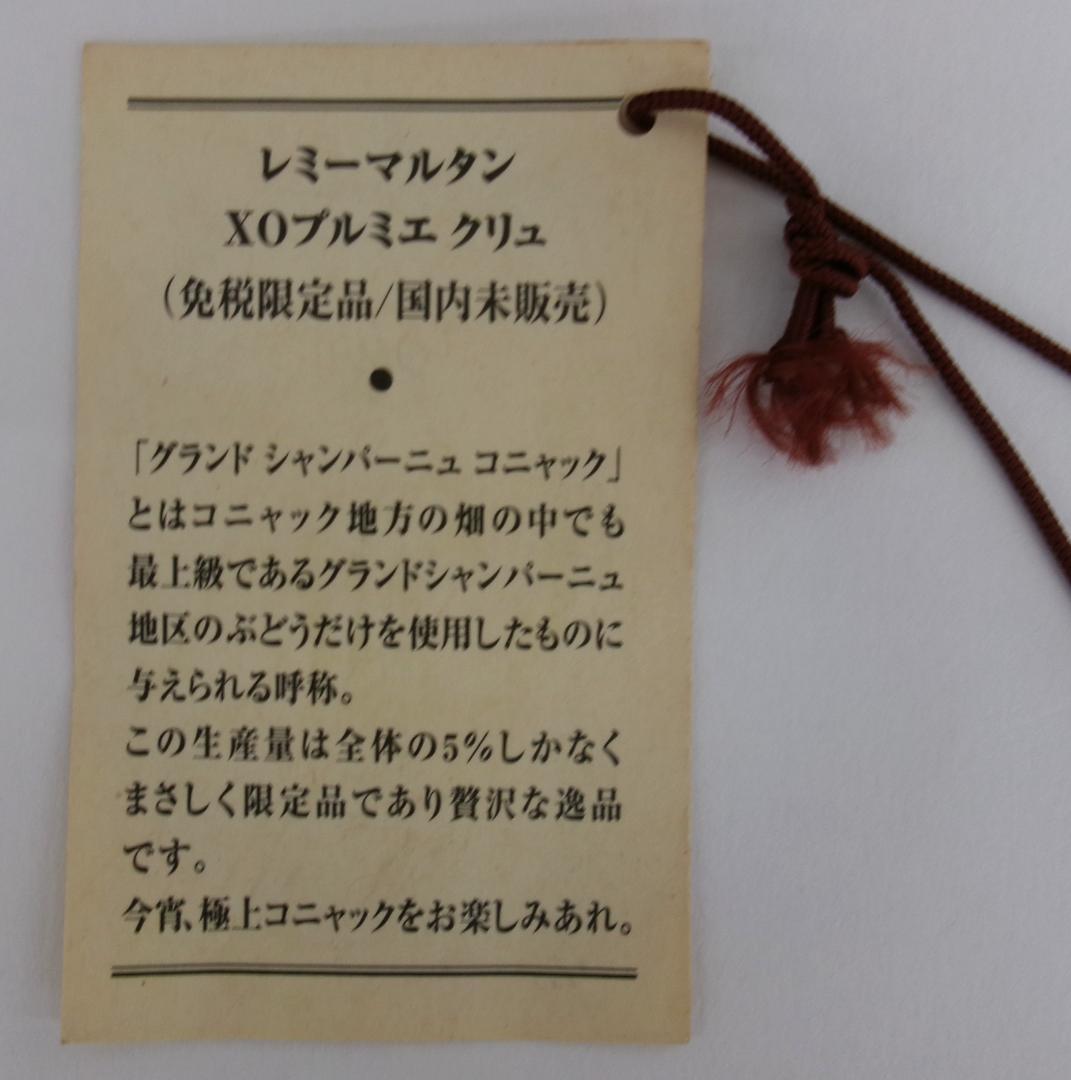 レミーマルタン
XOプルミエ クリュ
(免税限定品/国内未販売)
●
「グランド シャンパーニュ コニャック」
とはコニャック地方の畑の中でも
最上級であるグランドシャンパーニュ
地区のぶどうだけを使用したものに
与えられる呼称。
この生産量は全体の5%しかなく
まさしく限定品であり贅沢な逸品
です。
今宵、極上コニャックをお楽しみあれ。